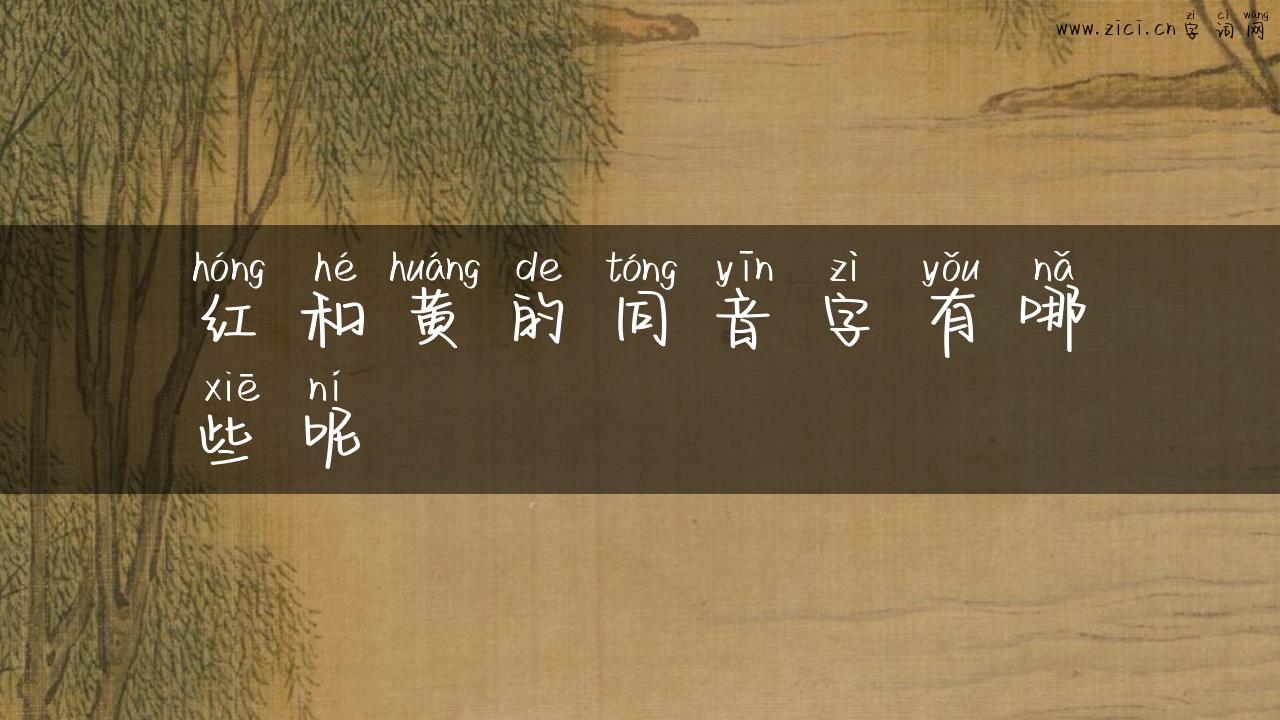 zì cí wǎng
www.zici.cn 字词网
hóng hé huáng de tóng yīn zì yǒu nǎ
红和黄的同音字有哪
xiē ní
些呢